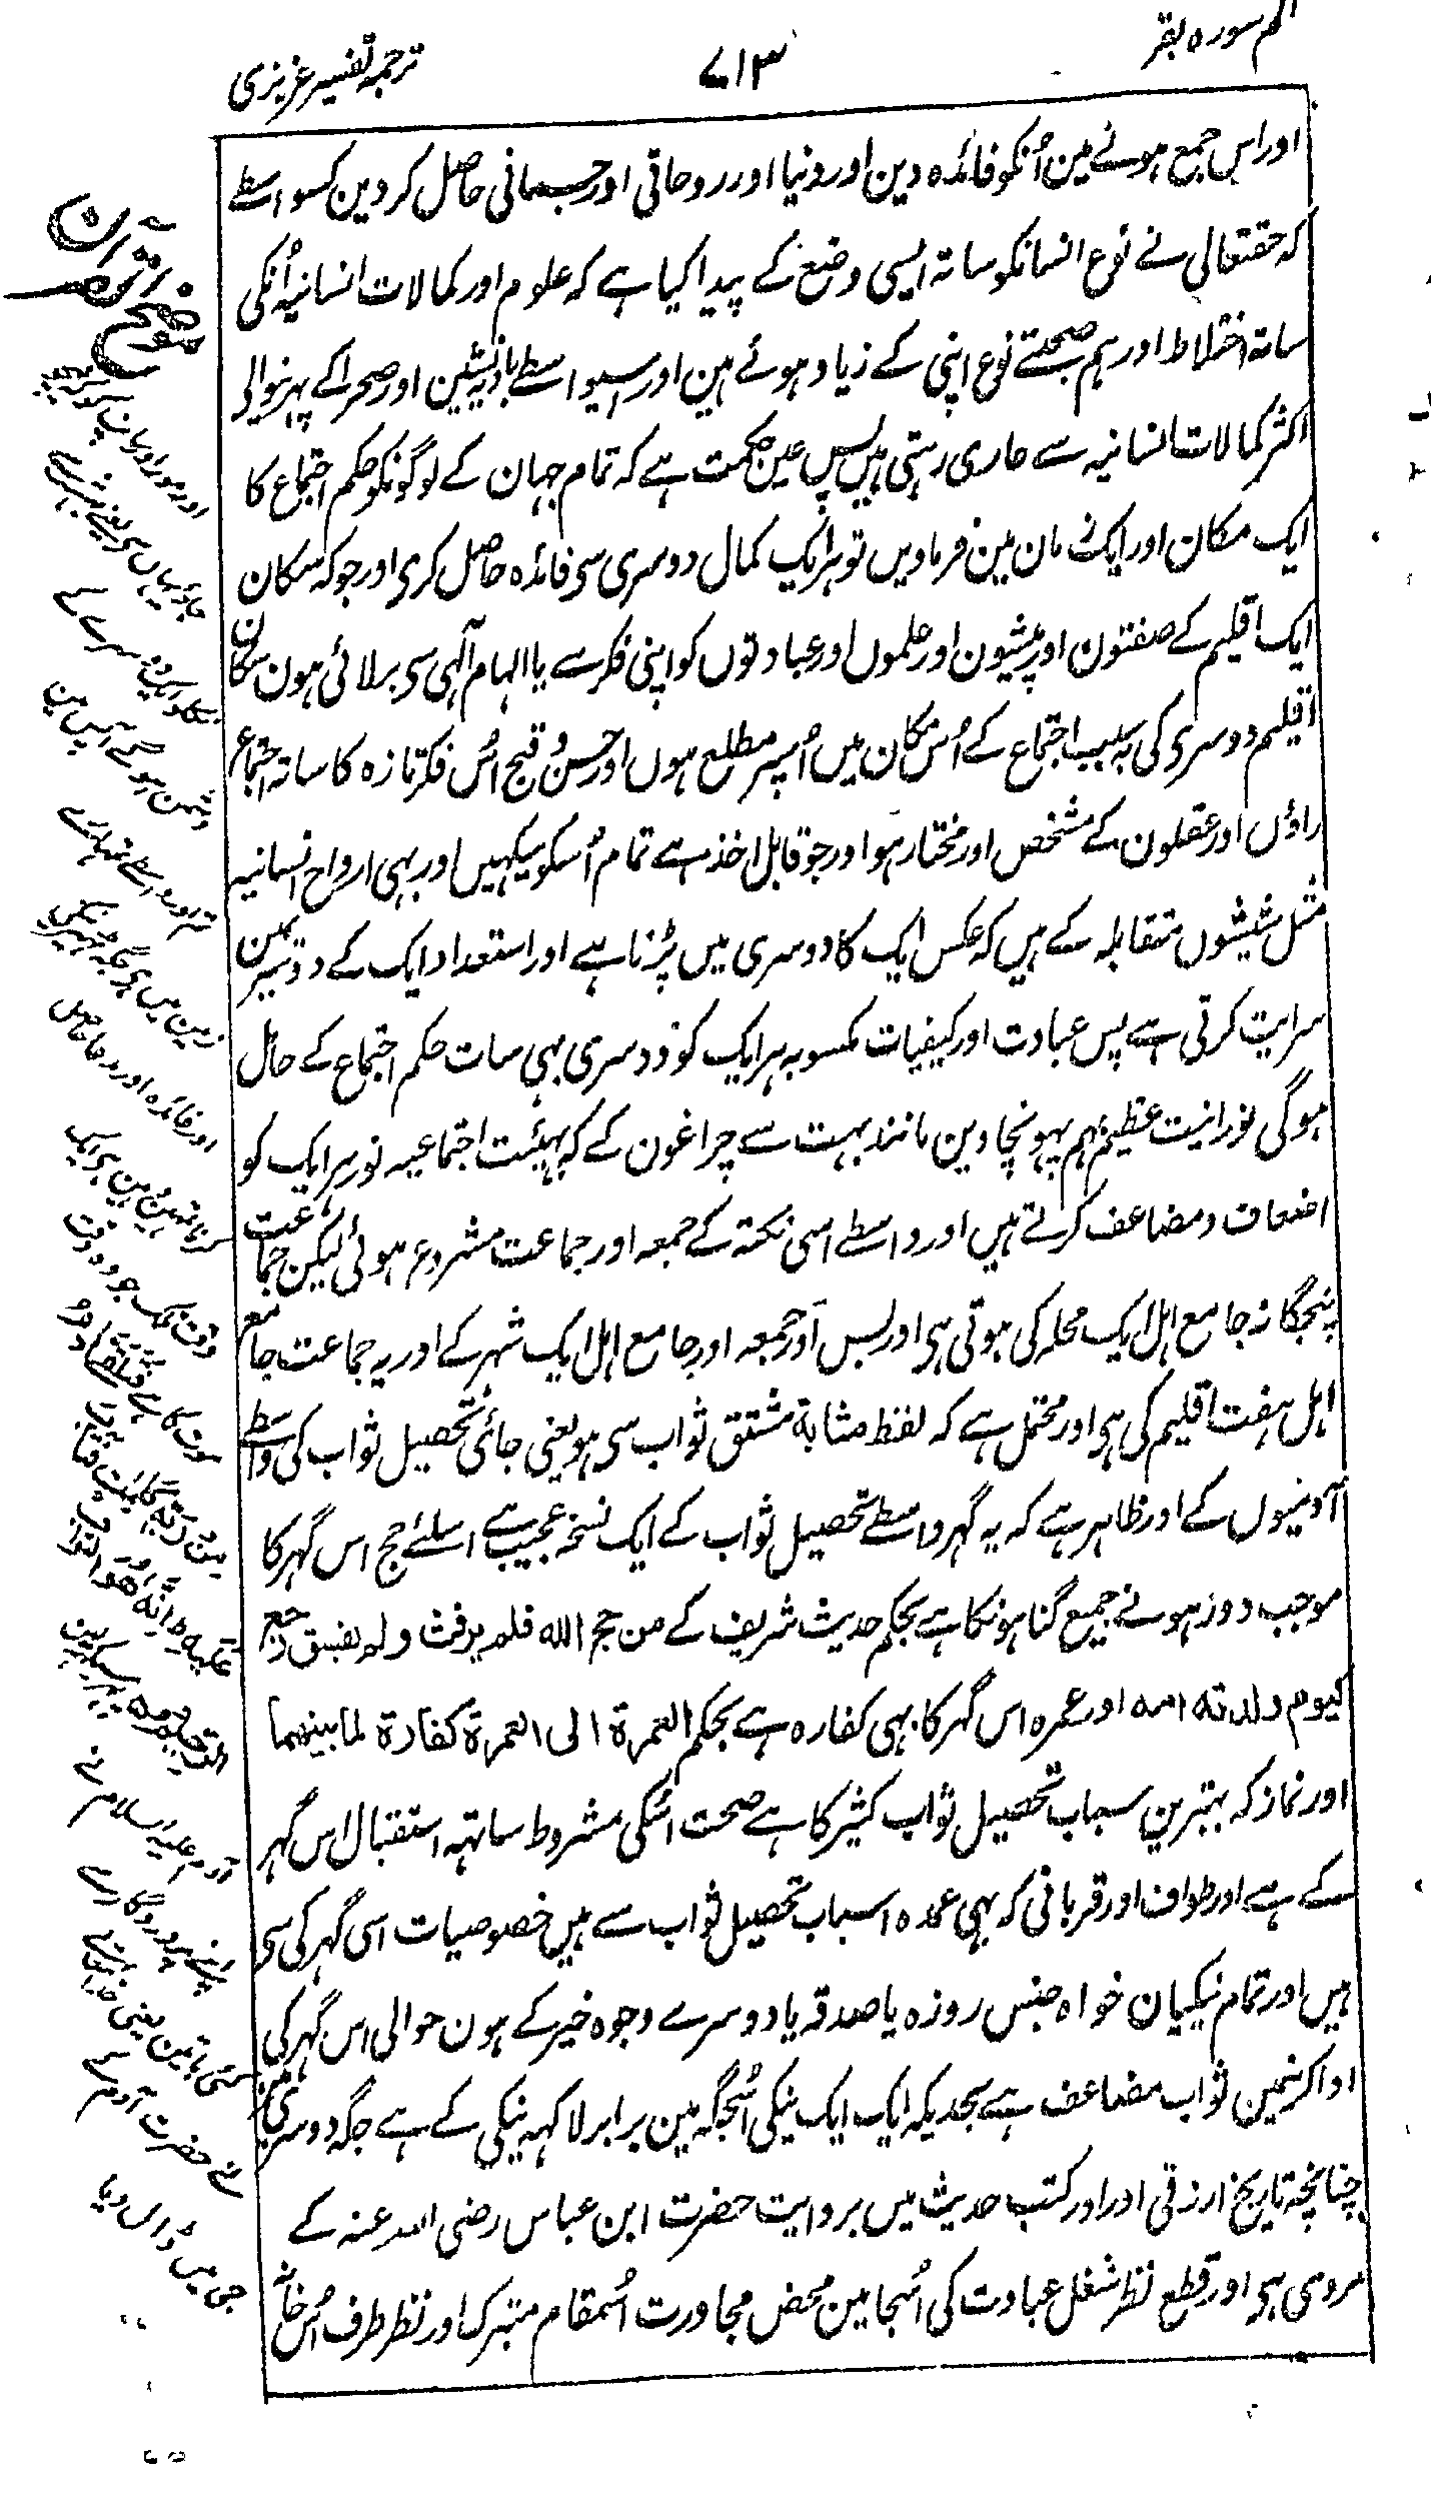 الم سورہ بقر
۷۱۳
ترجمہ تفسیر عزیزی
اور اس جمع ہونے مین اُنکو فائدہ دین اور دنیا اور روحانی اور جسمانی حاصل کر دین کسواسطے
کہ حقتعالی نے نوع انسانکو ساتہ ایسی وضع کے پیدا کیا ہے کہ علوم اور کمالات انسانیہ اُنکی
ساتہ اختلاط اور ہم صحبتے نوع اپنی کے زیاد ہوئے ہین اور اسیواسطے بادیہ نشین اور صحرا کے پہرنیوالی
اکثر کمالات انسانیہ سے عاری رہتی ہیں پس عین حکمت ہے کہ تمام جہان کے لوگونکو حکم اجتماع کا
ایک مکان اور ایک زمان مین فرماویں تو ہر ایک کمال دوسری سی فائدہ حاصل کری اور جو کہ سکان
ایک اقلیم کے صفتون اور پیشیون اور علموں اور عبادتوں کو اپنی فکر سے یا الہام آلہی سی برلائی ہون سکان
اقلیم دوسری کی بہ سبب اجتماع کے اُس مکان میں اُسپر مطلع ہوں اور حسن و قبح اُس فکر تازہ کا ساتہ اجتماع
راؤں اور عقلون کے مشخص اور مختار ہوا اور جو قابل اخذ ہے تمام اُسکو سیکہیں اور بہی ارواح انسانیہ
مثل شیشوں متقابلہ کے ہیں کہ عکس ایک کا دوسری میں پڑتا ہے اور استعداد ایک کے دوسرین
سرایت کرتی ہے پس عبادت اور کیفیات مکسوبہ ہر ایک کو دوسری بہی سات حکم اجتماع کے حاصل
ہوگی نورانیت عظیم بہم پہونچاوین مانند بہت سے چراغون کے کہ ہیئت اجتماعیہ نور ہر ایک کو
اضعاف و مضاعف کرتے ہیں اور واسطے اسی نکتہ کے جمعہ اور جماعت مشروع ہوئی لیکن جماعت
پنجگانہ جامع اہل ایک محلہ کی ہوتی ہی اور بس اور جمعہ اور جامع اہل ایک شہر کے اور یہ جماعت جامع
اہل ہفت اقلیم کی ہی اور محتمل ہے کہ لفظ مثابة مشتق ثواب سی ہو یعنی جائی تحصیل ثواب کی واسطے
آدمیوں کے اور ظاہر ہے کہ یہ گہر واسطے تحصیل ثواب کے ایک نسخہ عجیب ہے اسلئے حج اس گہر کا
موجب دور ہونے جمیع گناہونکا ہے بحکم حدیث شریف کے من حج الله فلم یرفث و لم یفسق رجع
کیوم ولدته امه اور عمرہ اس گہر کا بہی کفارہ ہے بحکم العمرة الی العمرة کفارة لما بینهما
اور نماز کہ بہترین اسباب تحصیل ثواب کثیر کا ہے صحت اسکی مشروط ساتہہ استقبال اس گہر
کے ہے اور طواف اور قربانی کہ بہی عمدہ اسباب تحصیل ثواب سے ہیں خصوصیات اسی گہر کی سی
ہیں اور تمام نیکیان خواہ جنس روزہ یا صدقہ یا دوسرے وجوہ خیر کے ہون حوالی اس گہر کی
ادا کرنیمین ثواب مضاعف ہے بحدیکہ ایک ایک نیکی اُسجگہ مین برابر لاکہہ نیکی کے ہے جگہ دوسری مین
چنانچہ تاریخ ارزقی اور اور کتب حدیث میں بروایت حضرت ابن عباس رضی اللہ عنہ کے
مروی ہی اور قطع نظر شغل عبادت کی اُسجا مین محض مجاورت اُسمقام متبرک اور نظر طرف اُس خانہ
موضح القرآن
دشمن ہوگے آپس مین
اور واسطے تمہارے
زمین میں
اور فائدہ اور
وقت تک جو وہ وقت
موت کا ہے فَتَلَقّٰی آدَمُ
مِنْ رَّبِّهٖ كَلِمٰتٍ فَتَابَ
عَلَيْهِ اِنَّهٗ هُوَ التَّوَّابُ
الرَّحِيْمُ پہر سیکہہ لین
آدم علیہ السلام نے
اپنے پروردگار سے
کئی باتین یعنی
نے حضرت آدم کے
جی میں ڈال دیا